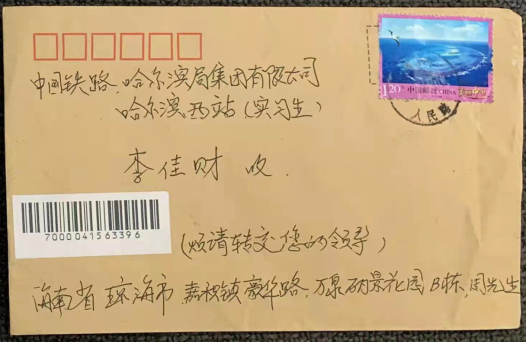 中国铁路哈尔滨局集团有限公司
哈尔滨西站(实习生)
1.20 中国邮政 CHINA
人民路
李佳财 收
7000041563396
(烦请转交您的领导)
海南省琼海市嘉积镇豪华路,万泉丽景花园B栋,周先生